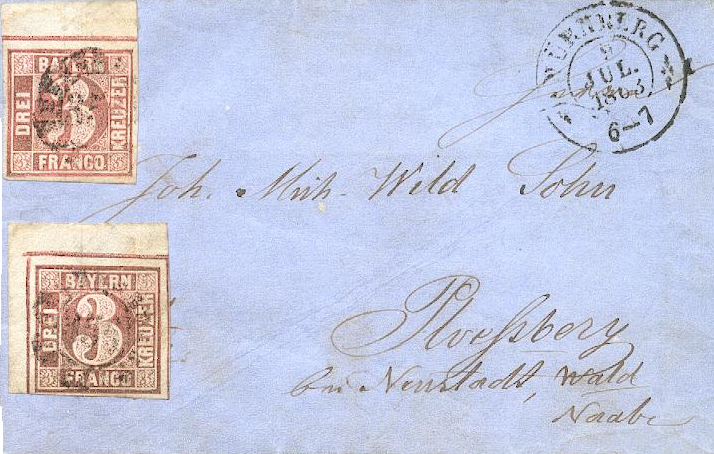 BAYERN
DREI
3
KREUZER
FRANCO
NÜRNBERG
9
JUL.
1863
6-7
Joh. Mich. Wild Sohn
BAYERN
DREI
3
KREUZER
FRANCO
Floeßberg
bei Neustadt, Wald
Naabe